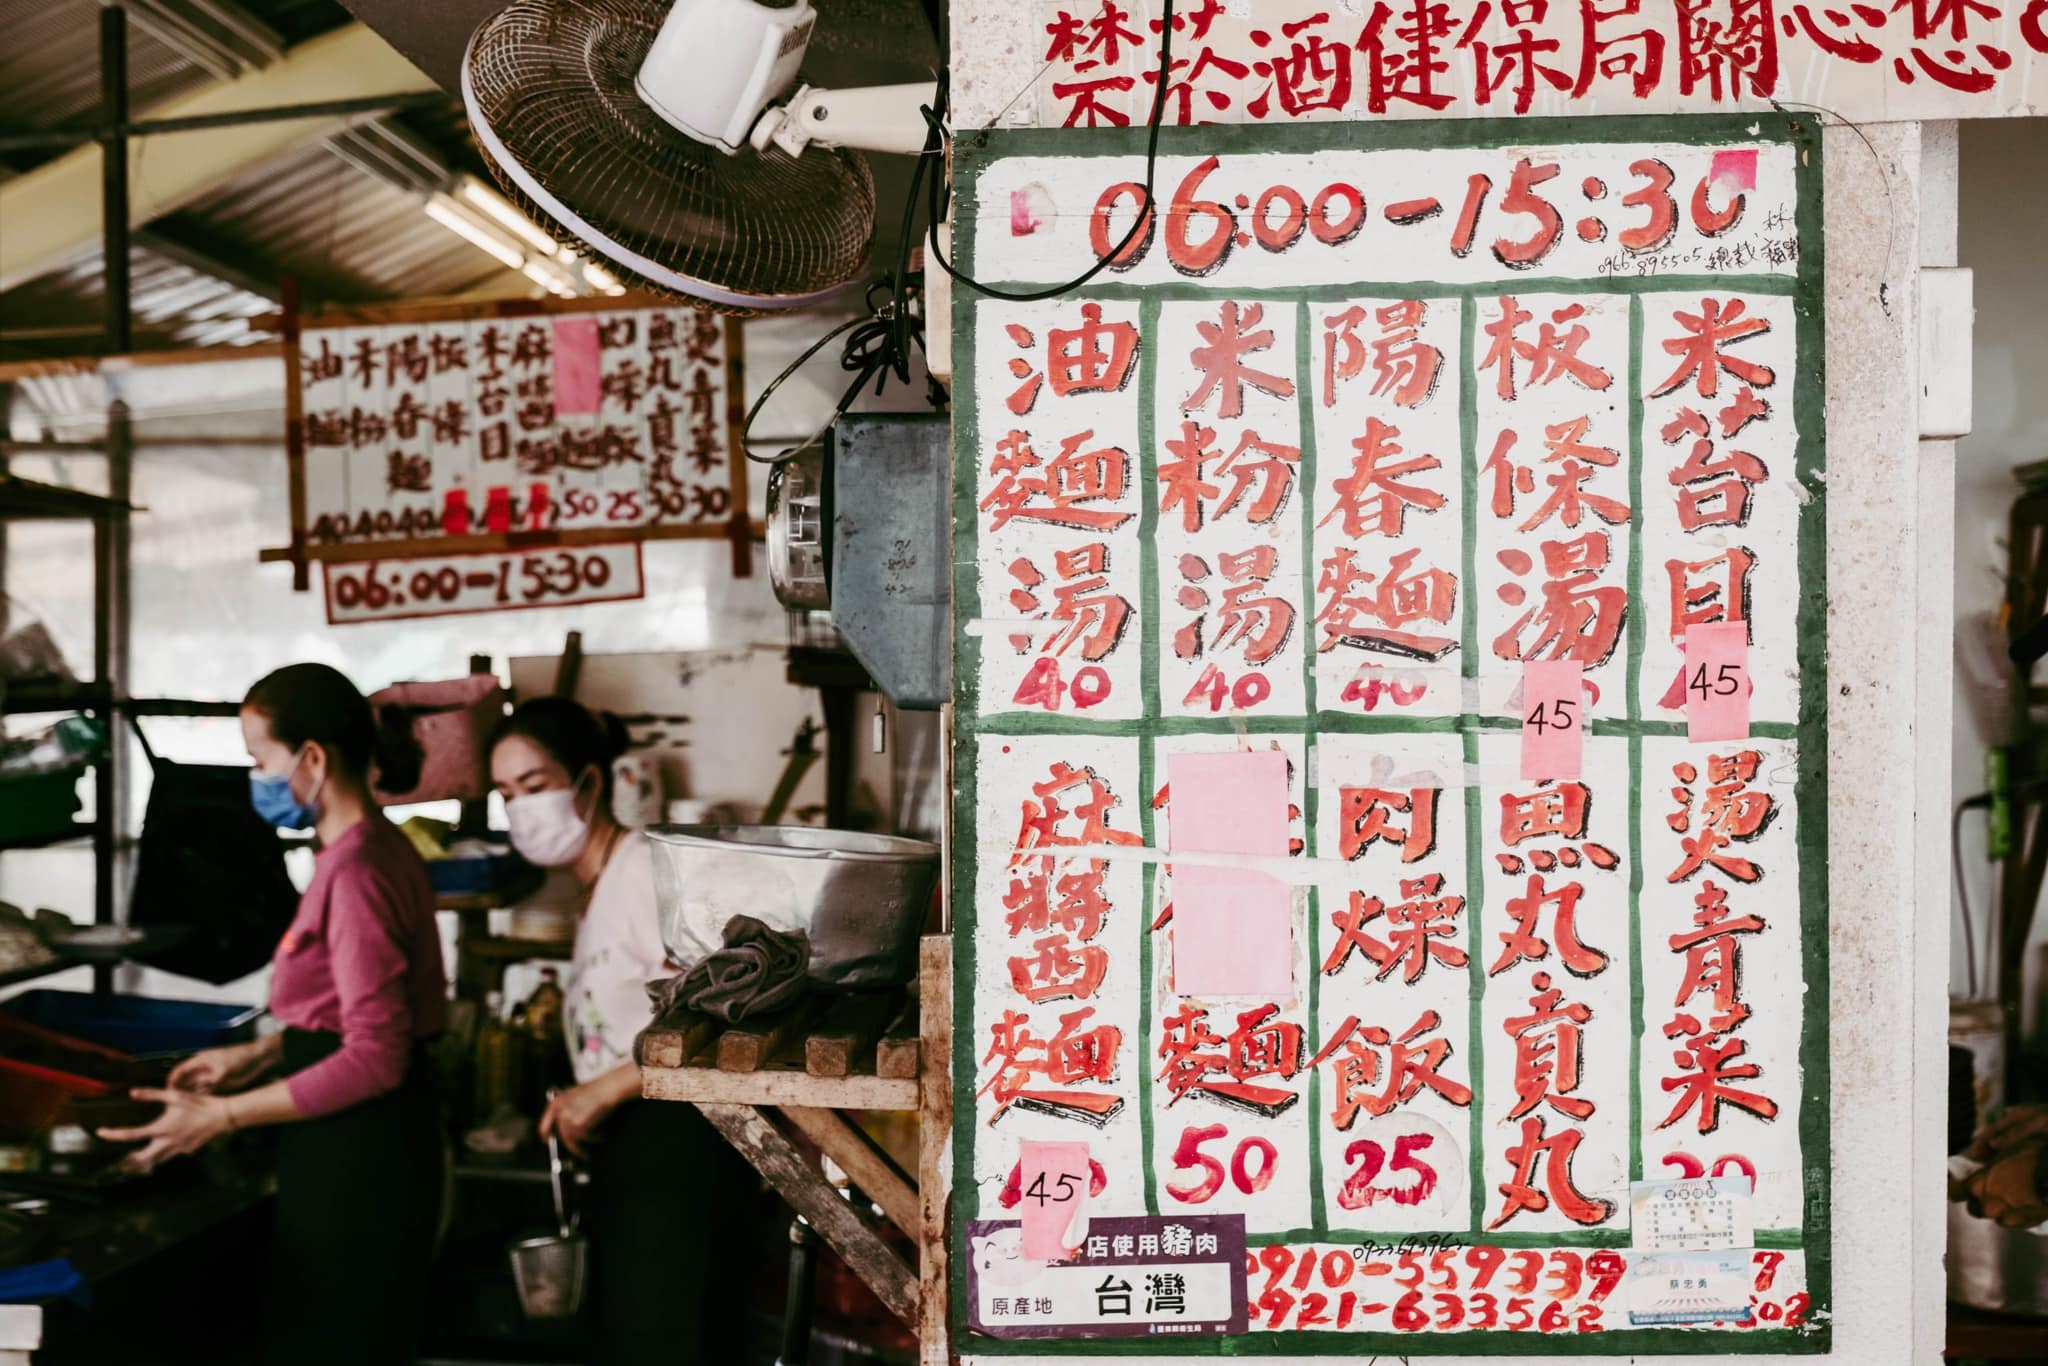 禁菸酒健保局關心您
06:00-15:30
林
0966.895505.
油麵湯
40
米粉湯
40
陽春麵
40
板條湯
45
米苔目
45
麻醬麵
45
麵
50
肉燥飯
25
魚丸貢丸
燙青菜
30
店使用豬肉
原產地
台灣
0933693963
0910-559339
0921-633562
蔡忠勇
7
502
油麵
40
米粉
40
陽春麵
40
板條
米苔目
麻醬麵
麵
50
肉燥飯
25
魚丸貢丸
30
燙青菜
30
06:00-15:30